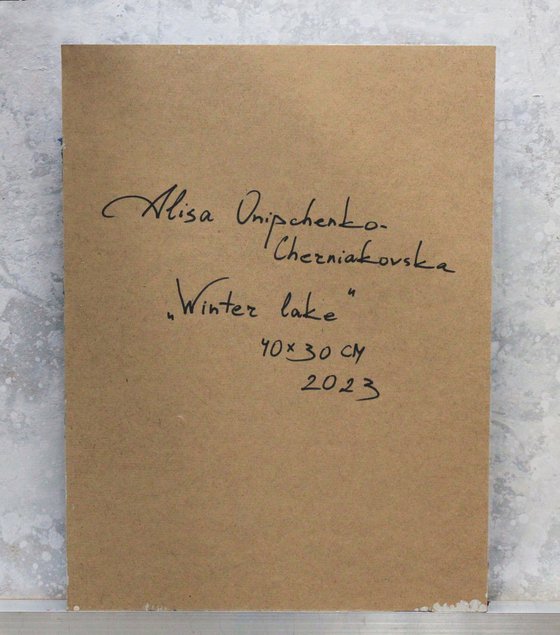 Alisa Onipchenko-
Cherniakovska
„Winter lake"
40×30 см
2023